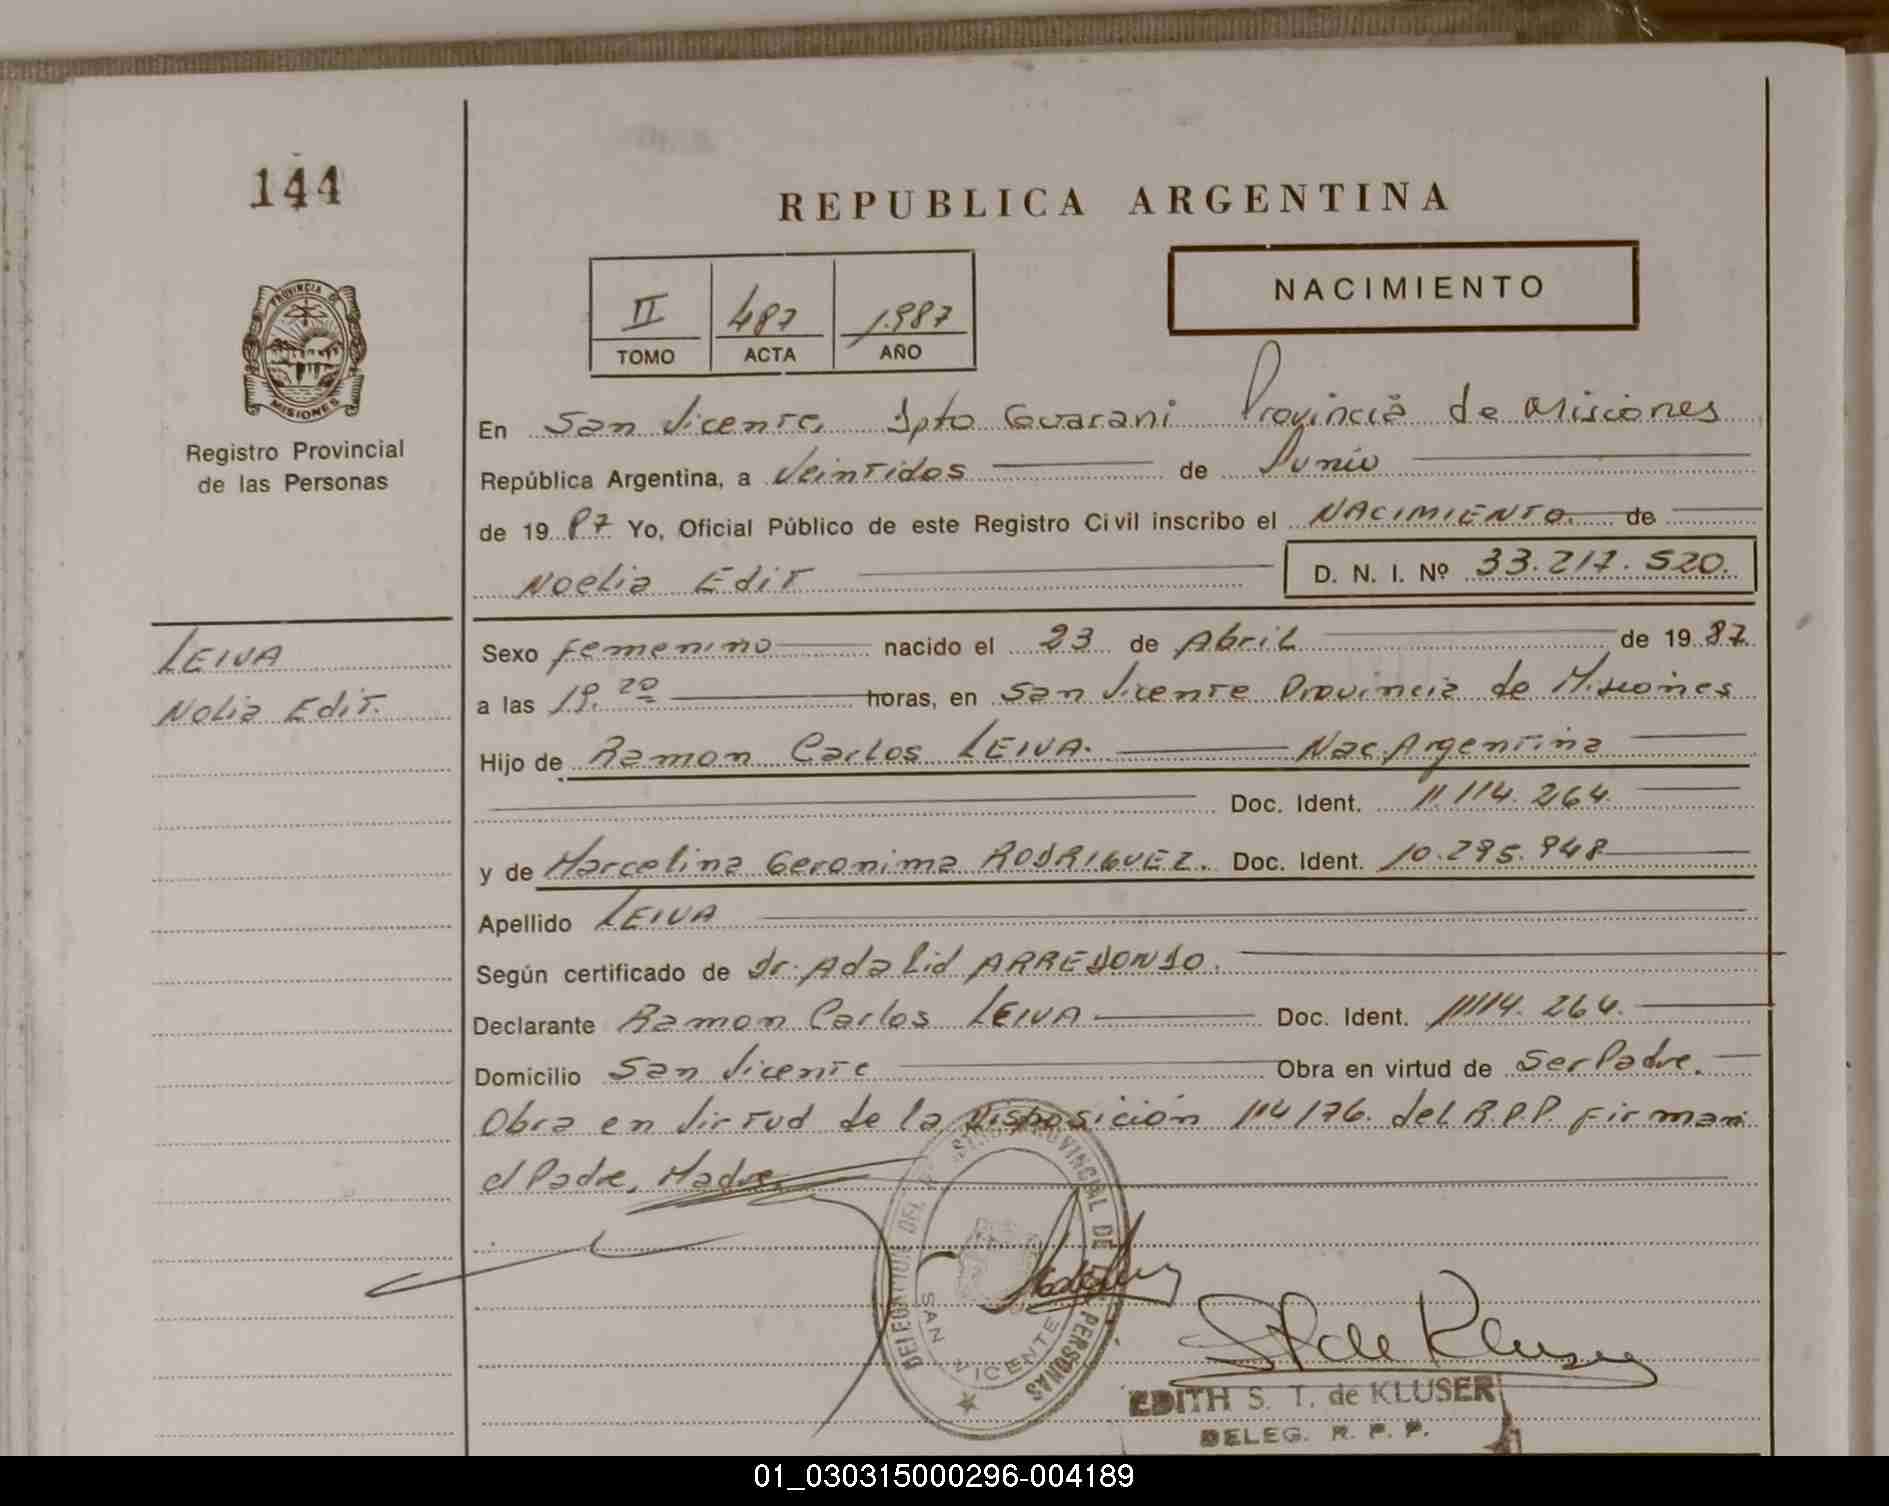 144
REPUBLICA ARGENTINA
II 487 1.987
TOMO ACTA AÑO
NACIMIENTO
PROVINCIA DE
MISIONES
Registro Provincial
de las Personas
En San Vicente, Dpto Guarani Provincia de Misiones
República Argentina, a Veintidos de Junio
de 19 87 Yo, Oficial Público de este Registro Civil inscribo el NACIMIENTO. de
Noelia Edit D. N. I. Nº 33.217.520.
LEIVA
Nolia Edit.
Sexo Femenino nacido el 23 de Abril de 19 87.
a las 19.20 horas, en San Vicente Provincia de Misiones
Hijo de Ramon Carlos LEIVA. Nac. Argentina
Doc. Ident. 11.114.264.
y de Marcelina Geronima RODRIGUEZ. Doc. Ident. 10.295.948
Apellido LEIVA
Según certificado de Dr. Adalid ARREDONDO.
Declarante Ramon Carlos LEIVA Doc. Ident. 11114.264.
Domicilio San Vicente Obra en virtud de Ser Padre.
Obra en Virtud de la Disposición 114/76. del R.P.P. Firman
el Padre, Madre,
DELEGACION DEL REGISTRO PROVINCIAL DE PERSONAS
SAN VICENTE
S T de Kluser
EDITH S. T. de KLUSER
DELEG. R. P. P.
01_030315000296-004189